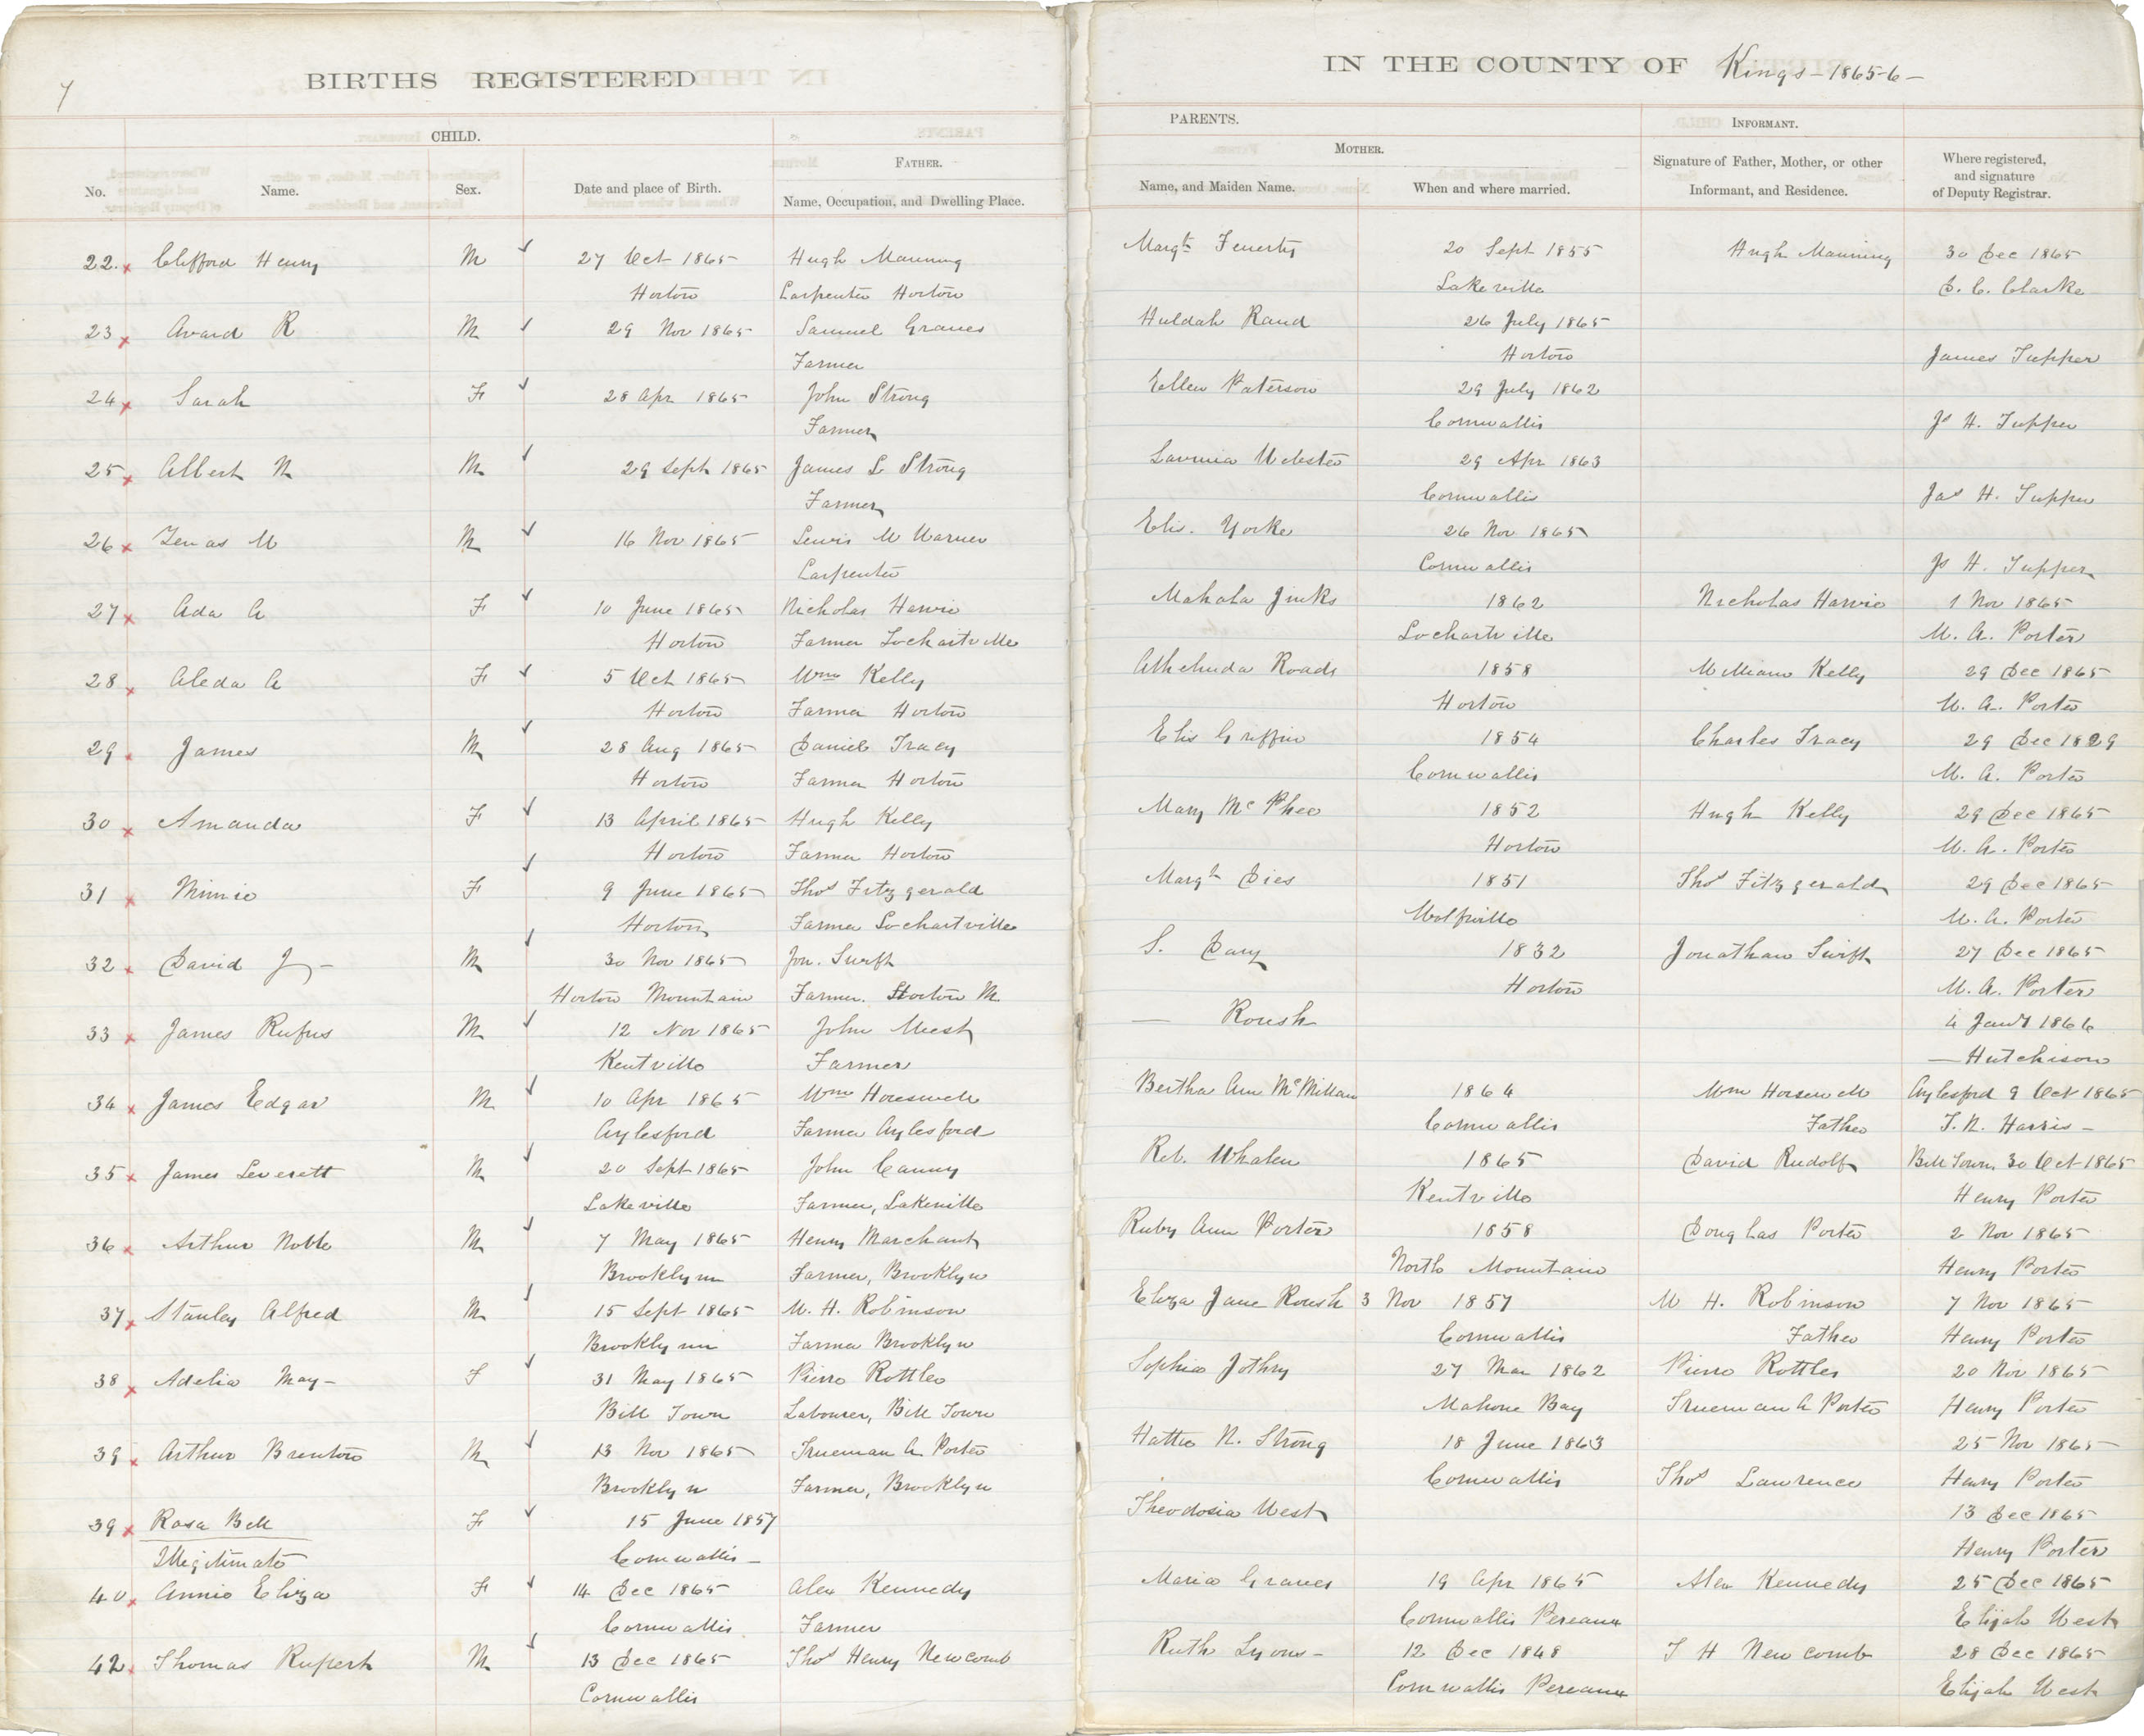 7
BIRTHS REGISTERED
IN THE COUNTY OF Kings - 1865-6 -
CHILD.
PARENTS.
INFORMANT.
No.
Name.
Sex.
Date and place of Birth.
FATHER.
Name, Occupation, and Dwelling Place.
MOTHER.
Name, and Maiden Name.
When and where married.
Signature of Father, Mother, or other
Informant, and Residence.
Where registered,
and signature
of Deputy Registrar.
22. Clifford Henry M 27 Oct 1865 Hugh Manning Margt Fenerty 20 Sept 1855 Hugh Manning 30 Dec 1865
Horton Carpenter Horton Lakeville D. C. Clarke
23 Avard R M 29 Nov 1865 Samuel Graves Huldah Rand 26 July 1865
Farmer Horton James Tupper
24 Sarah F 28 Apr 1865 John Strong Ellen Paterson 29 July 1862
Farmer Cornwallis Js H. Tupper
25 Albert N M 29 Sept 1865 James L Strong Lavinia Webster 29 Apr 1863
Farmer Cornwallis Jas H. Tupper
26 Zenas W M 16 Nov 1865 Lewis W Warner Elis. Yorke 26 Nov 1865
Carpenter Cornwallis Js H. Tupper
27 Ada A F 10 June 1865 Nicholas Harvie Mahala Jinks 1862 Nicholas Harvie 1 Nov 1865
Horton Farmer Lochartville Lochartville W. A. Porter
28 Aleda A F 5 Oct 1865 Wm Kelly Athelinda Roads 1858 William Kelly 29 Dec 1865
Horton Farmer Horton Horton W. A. Porter
29 James M 28 Aug 1865 Daniel Tracy Elis Griffin 1854 Charles Tracy 29 Dec 1829
Horton Farmer Horton Cornwallis W. A. Porter
30 Amanda F 13 April 1865 Hugh Kelly Mary McPhee 1852 Hugh Kelly 29 Dec 1865
Horton Farmer Horton Horton W. A. Porter
31 Minnie F 9 June 1865 Thos Fitzgerald Margt Dies 1851 Thos Fitzgerald 29 Dec 1865
Horton Farmer Lochartville Wolfville W. A. Porter
32 David J - M 30 Nov 1865 Jon. Swift S. Davy 1832 Jonathan Swift 27 Dec 1865
Horton Mountain Farmer. Horton M. Horton W. A. Porter
33 James Rufus M 12 Nov 1865 John West — Roush 4 Jany 1866
Kentville Farmer — Hutchison
34 James Edgar M 10 Apr 1865 Wm Horeswell Bertha Ann McMillan 1864 Wm Horsewell Aylesford 9 Oct 1865
Aylesford Farmer Aylesford Cornwallis Father T. R. Harris -
35 James Leverett M 20 Sept 1865 John Canny Reb. Whalen 1865 David Rudolf Bill Town 30 Oct 1865
Lakeville Farmer, Lakeville Kentville Henry Porter
36 Arthur Noble M 7 May 1865 Henry Marchant Ruby Ann Porter 1858 Douglas Porter 2 Nov 1865
Brooklynn Farmer, Brooklyn North Mountain Henry Porter
37 Stanley Alfred M 15 Sept 1865 W. H. Robinson Eliza Jane Roush 3 Nov 1857 W H. Robinson 7 Nov 1865
Brooklynn Farmer Brooklyn Cornwallis Father Henry Porter
38 Adelia May - F 31 May 1865 Pierro Rottler Sophia Jothry 27 Mar 1862 Pierro Rottler 20 Nov 1865
Bill Town Labourer, Bill Town Mahone Bay Trueman A Porter Henry Porter
39 Arthur Brenton M 13 Nov 1865 Trueman A Porter Hattie N. Strong 18 June 1863 25 Nov 1865
Brooklyn Farmer, Brooklyn Cornwallis Thos Lawrence Henry Porter
39 Rosa Bell F 15 June 1857 Theodosia West 13 Dec 1865
Illegitimate Cornwallis - Henry Porter
40 Annie Eliza F 14 Dec 1865 Alex Kennedy Maria Graves 19 Apr 1865 Alex Kennedy 25 Dec 1865
Cornwallis Farmer Cornwallis Pereaux Elijah West
42 Thomas Rupert M 13 Dec 1865 Thos Henry Newcomb Ruth Lyons - 12 Dec 1848 T H Newcomb 28 Dec 1865
Cornwallis Cornwallis Pereaux Elijah West